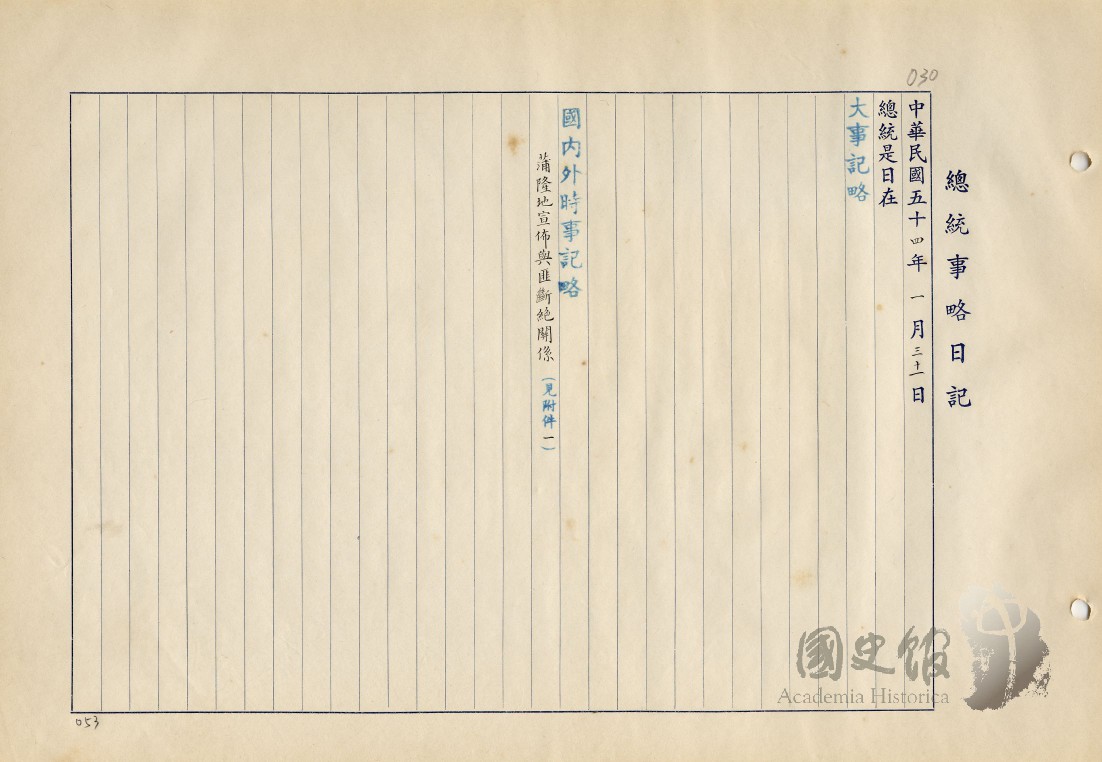 030
總統事略日記
中華民國五十四年一月三十一日
總統是日在
大事記略
國內外時事記略
蒲隆地宣佈與匪斷絶關係(見附件一)
053
國史館
Academia Historica